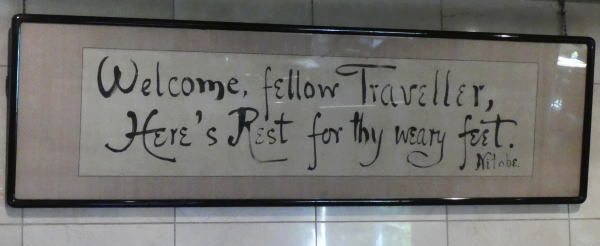 Welcome, fellow Traveller,
Here's Rest for thy weary feet.
Nitobe.